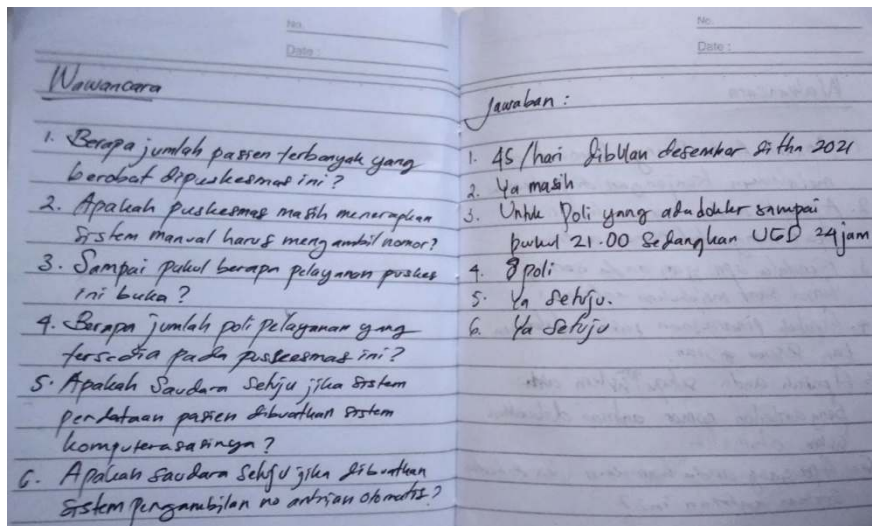 No.
Date :
Wawancara
1. Berapa jumlah pasien terbanyak yang
berobat dipuskesmas ini?
2. Apakah puskesmas masih menerapkan
sistem manual harus mengambil nomor?
3. Sampai pukul berapa pelayanan puskes
ini buka?
4. Berapa jumlah poli pelayanan yang
tersedia pada puskesmas ini?
5. Apakah Saudara Setuju jika sistem
pendataan pasien dibuatkan sistem
komputerasasinya?
6. Apakah saudara Setuju jika dibuatkan
sistem pengambilan no antrian otomatis?
No.
Date :
Jawaban :
1. 45 /hari dibulan desember di thn 2021
2. Ya masih
3. Untuk Poli yang ada dokter sampai
pukul 21.00 Sedangkan UGD 24 jam
4. 8 poli
5. Ya Setuju.
6. Ya Setuju